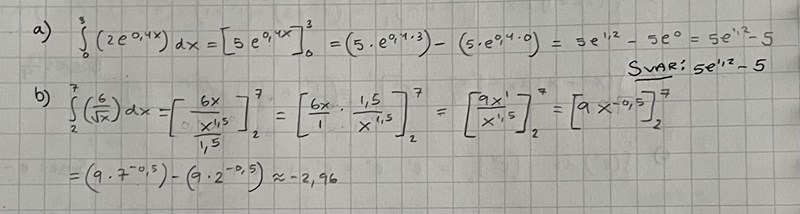 a) ∫₀³ (2e^{0,4x}) dx = [5 e^{0,4x}]₀³ = (5·e^{0,4·3}) − (5·e^{0,4·0}) = 5e^{1,2} − 5e⁰ = 5e^{1,2} − 5
SVAR: 5e^{1,2} − 5
b) ∫₂⁷ (6/√x) dx = [6x/(x^{1,5}/1,5)]₂⁷ = [6x/1 · 1,5/x^{1,5}]₂⁷ = [9x¹/x^{1,5}]₂⁷ = [9x^{−0,5}]₂⁷
= (9·7^{−0,5}) − (9·2^{−0,5}) ≈ −2,96